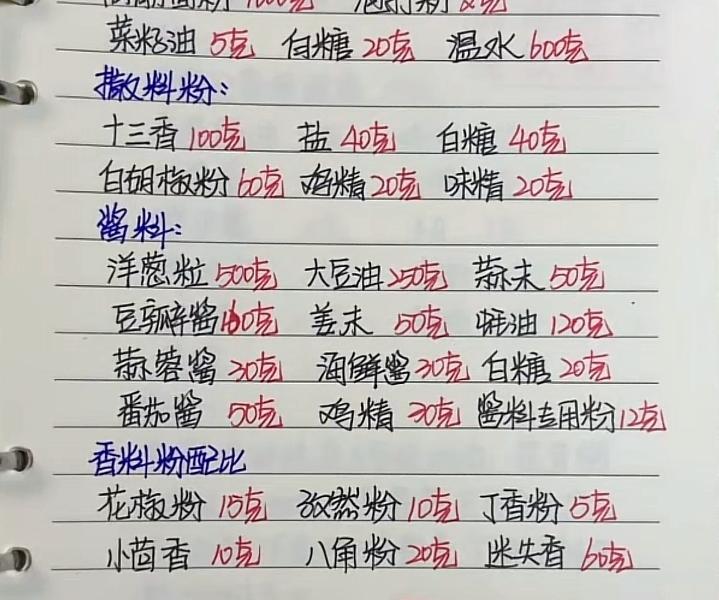 菜籽油 5克 白糖 20克 温水 600克
撒料粉:
十三香 100克 盐 40克 白糖 40克
白胡椒粉 60克 鸡精 20克 味精 20克
酱料:
洋葱粒 500克 大豆油 250克 蒜末 50克
豆瓣酱 克 姜末 50克 蚝油 120克
蒜蓉酱 30克 海鲜酱 30克 白糖 20克
番茄酱 50克 鸡精 30克 酱料专用粉 12克
香料粉配比
花椒粉 15克 孜然粉 10克 丁香粉 5克
小茴香 10克 八角粉 20克 迷失香 60克